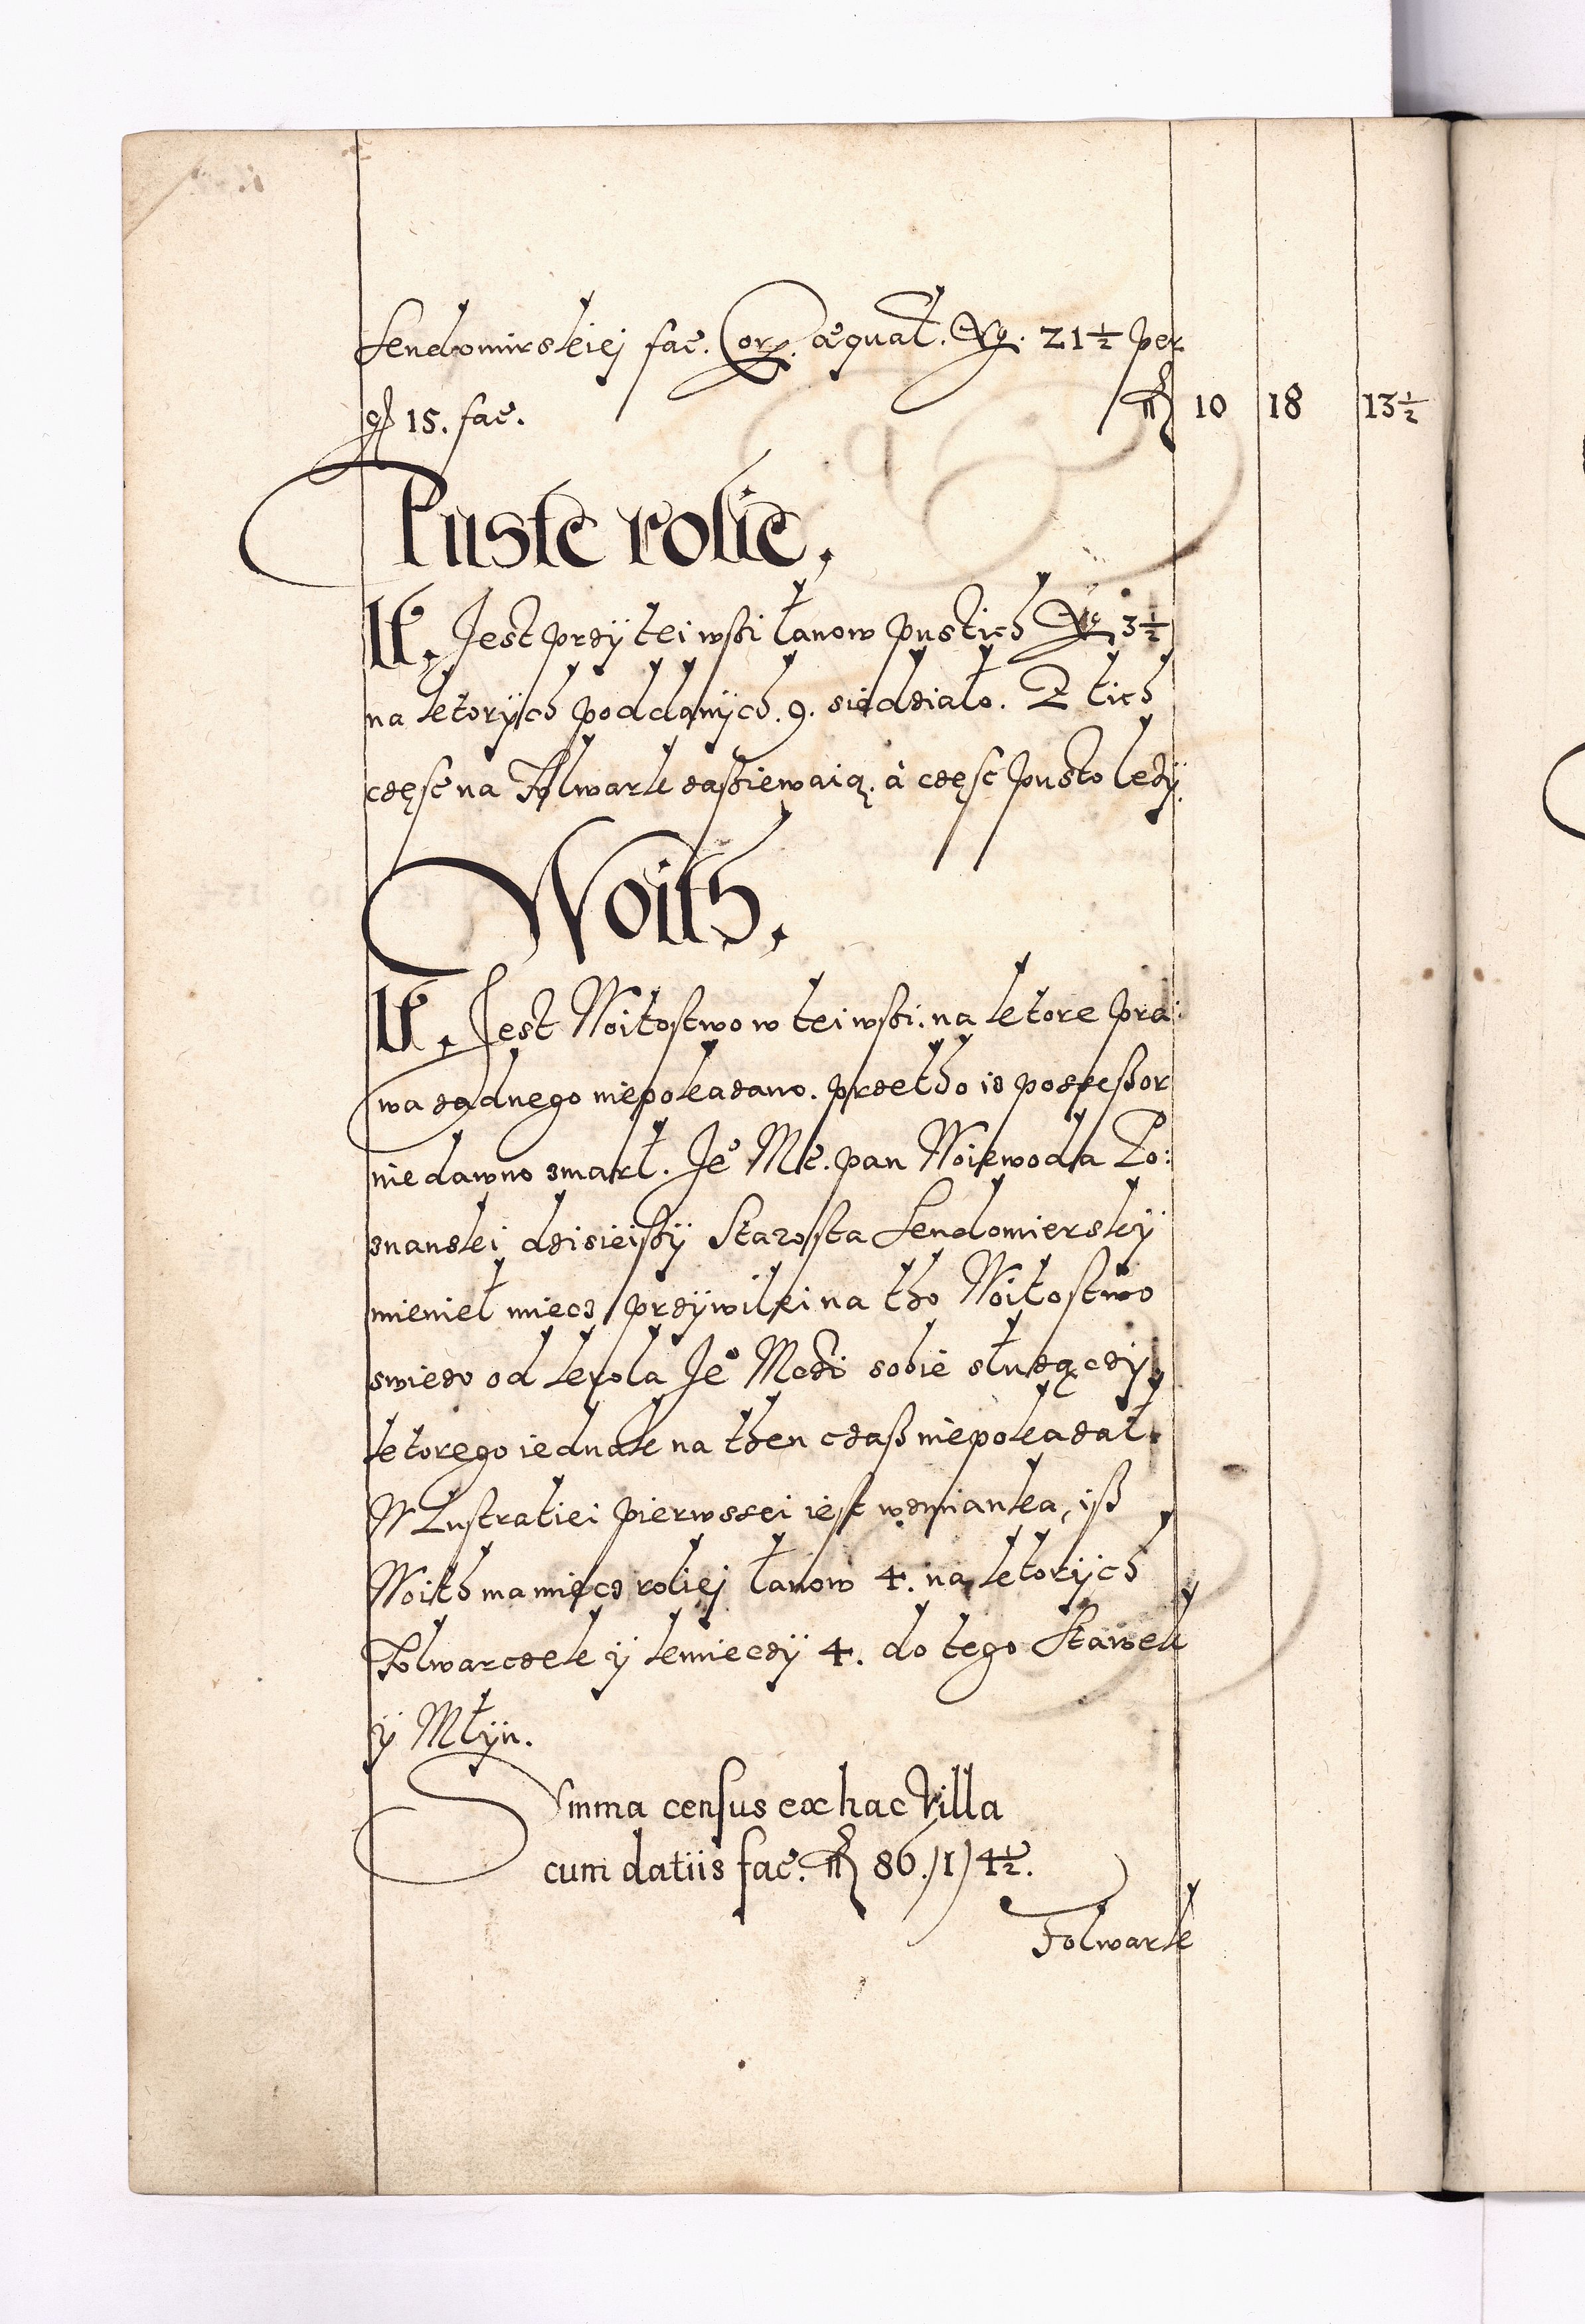 Sendomirskiej fac. Corp. æqual. No. 21½ per
gſ 15. fac. fl 10 18 13½
Puste rolie,
It. Jest przÿ tei wsżi łanow pustich No 3½
na ktorÿch poddanÿch. 9. siedziało. Z tich
częſc na Folwark zaßiewaią. á częſc pusto leżÿ
Woith,
It. Jest Woitoſtwo w tei wsżi. na ktore pra:
wa żadnego niepokazano. przetho iż posseßor
niedawno zmarł. Je° Mć. pan Woiewoda Po:
znanski dzisieißÿ Starosta Sendomierskÿ
mienieł miecz przÿwilei na tho Woitoſtwo
swiezo od krola Je° Mczi sobie słuzączÿ,
ktorego iednak na then czaß niepokazał.
W Luſtratiei pierwssei ieſt wzmianka, iß
Woith ma miecz roliej łanow 4. na ktorÿch
Folwarczek ÿ kmieczÿ 4. do tego Stawek
ÿ Młÿn.
Summa censſus ex hac Villa
cum datiis fac. fl 86.)1) 4½.
Folwark